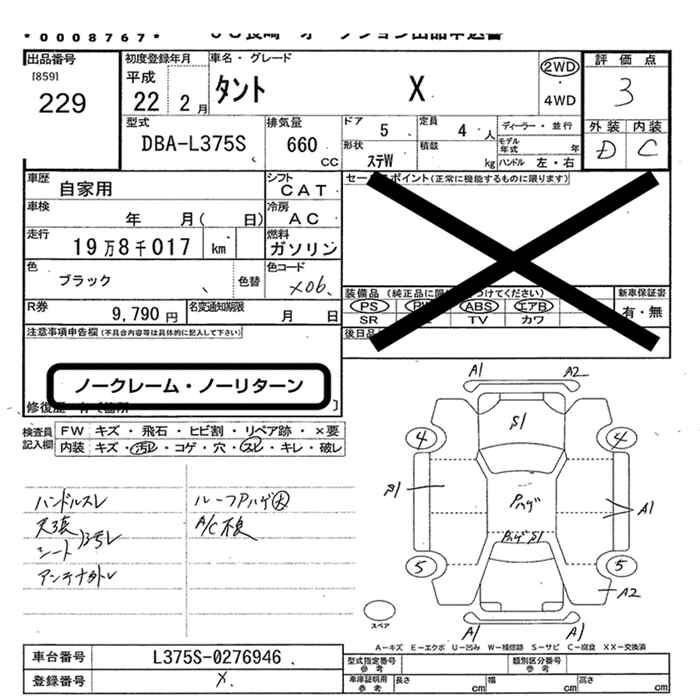 *0008767*
出品番号
[859]
229
初度登録年月
平成
22 2月
車名・グレード
タント X
2WD
・
4WD
評価点
3
外装 内装
D C
型式
DBA-L375S
排気量
660
cc
ドア
5
定員
4 人
形状
ステW
積載
kg
ディーラー・並行
モデル年式 年
ハンドル 左・右
車歴
自家用
シフト
CAT
車検
年 月( 日)
冷房
AC
走行
19万8千017 km
燃料
ガソリン
色
ブラック
色替
色コード
X06
R券
9,790 円
名変通知期限
月 日
セールスポイント(正常に機能するものに限ります)
装備品
PS ABS エアB
SR TV カワ
新車保証書
有・無
後日品
注意事項申告欄(不具合内容等は具体的に記入して下さい)
ノークレーム・ノーリターン
検査員記入欄
FW キズ・飛石・ヒビ割・リペア跡・×要
内装 キズ・汚レ・コゲ・穴・スレ・キレ・破レ
ハンドルスレ
ルーフPハゲ大
天張
シート
汚レ
A/C不良
アンテナ外レ
A1 A2
S1
4 4
S1
Pハゲ
A1
PハゲS1
5 5
A2
A1 A1
スペア
A-キズ E-エクボ U-凹み W-補修跡 S-サビ C-腐食 XX-交換済
車台番号
L375S-0276946
登録番号
X
型式指定番号
参考
類別区分番号
参考
車庫証明用
参考
長さ cm
幅 cm
高さ cm